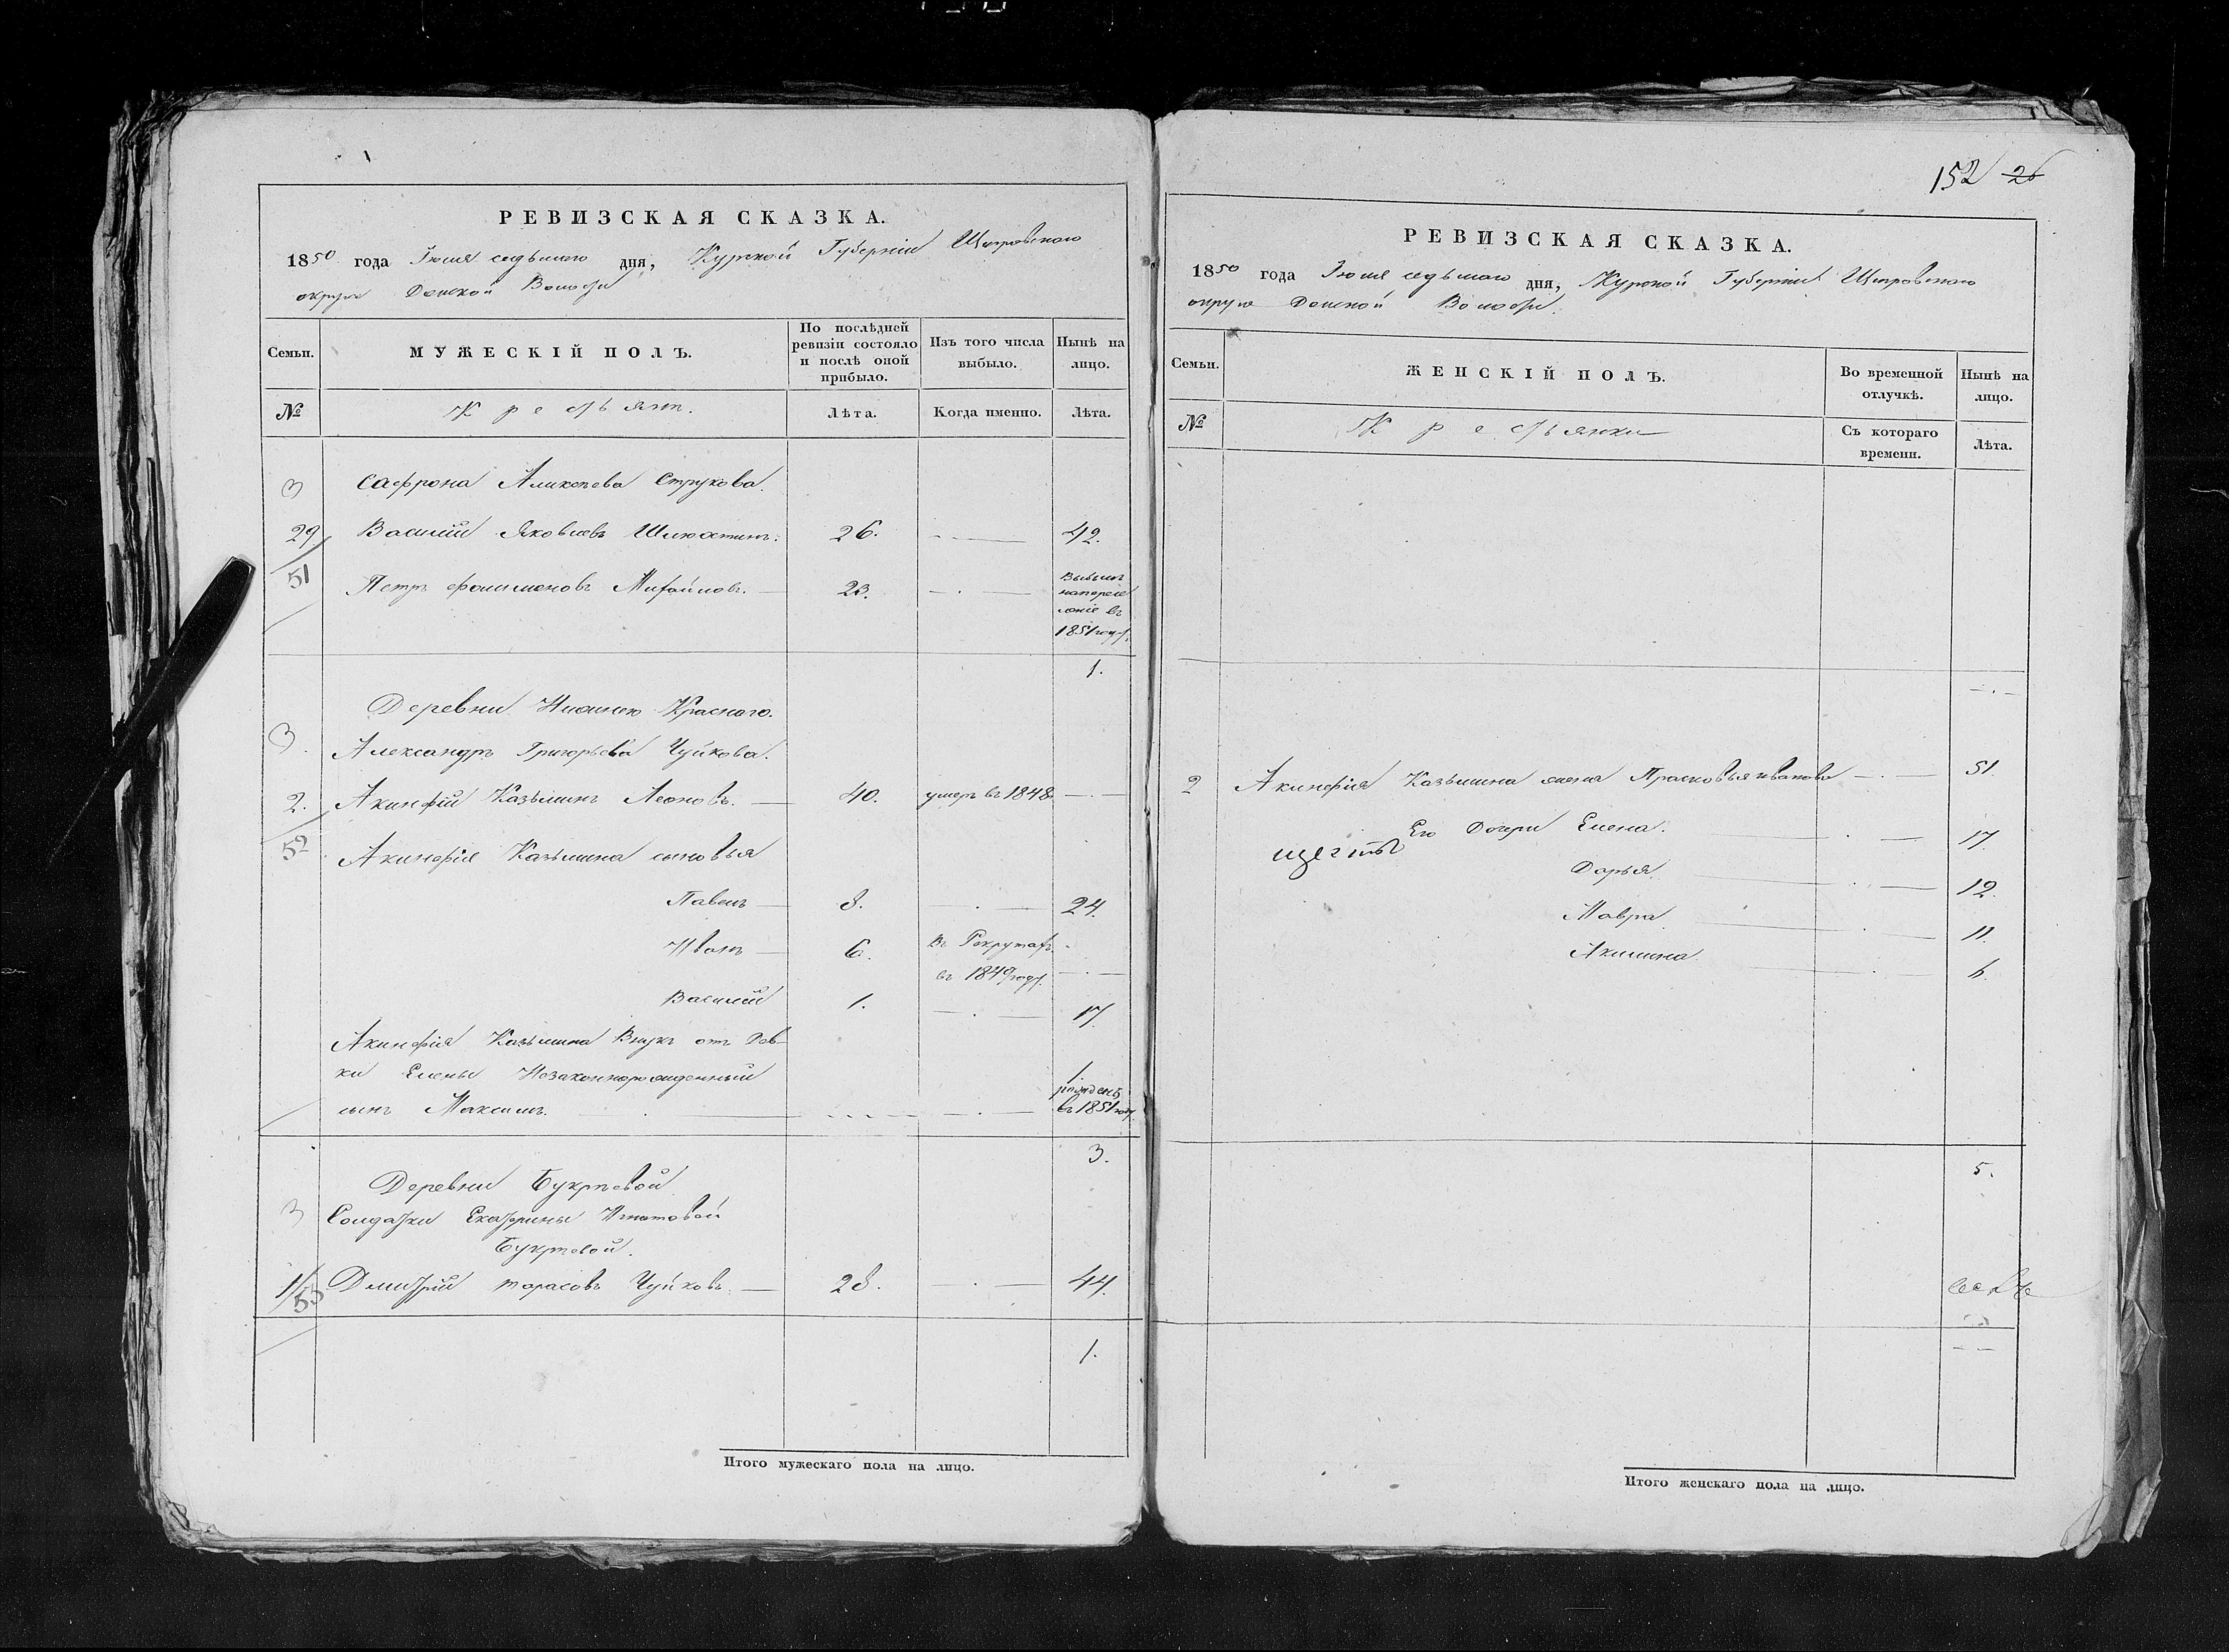 РЕВИЗСКАЯ СКАЗКА.
1850 года Іюля седьмаго дня, Курской Губерніи Щигровскаго
округа Донской Волости
Семьи.
МУЖЕСКІЙ ПОЛЪ.
По послѣдней ревизіи состояло и послѣ оной прибыло.
Изъ того числа выбыло.
Нынѣ на лицо.
№
Крестьян.
Лѣта.
Когда именно.
Лѣта.
3 Сафрона Струкова.
29 Василій Яковлевъ 26. 42.
51 Петръ Филимоновъ 23.
в
1851 году.
1.
Деревни Красного.
3. Александръ Григорьева Чуйкова.
2. Акинфій Казьминъ Леоновъ. 40. умеръ въ 1848
52 Акинфія Казьмина сыновья
Павелъ 8. 24.
Иванъ 6. Въ Рекрутахъ
въ 1849 году.
Василій 1. 17.
Акинфія Казьмина Внукъ отъ Дев-
ки Елены Незаконнорожденный
сынъ Максимъ. 1 рожденъ
въ 1851 году.
3.
Деревни
3 Солдатки Екатерины Игнатовой
1/53 Дмитрій Тарасовъ Чуйковъ. 28. 44.
1.
Итого мужескаго пола на лицо.
152 26
РЕВИЗСКАЯ СКАЗКА.
1850 года Іюля седьмаго дня, Курской Губерніи Щигровскаго
округа Донской Волости.
Семьи.
ЖЕНСКІЙ ПОЛЪ.
Во временной отлучкѣ.
Нынѣ на лицо.
№
Крестьянки
Съ котораго времени.
Лѣта.
2 Акинфія Казьмина жена Прасковья иванова 51.
Его Дочери Елена. 17
Дарья. 12.
Мавра. 11.
Акилина 6.
5.
Итого женскаго пола на лицо.